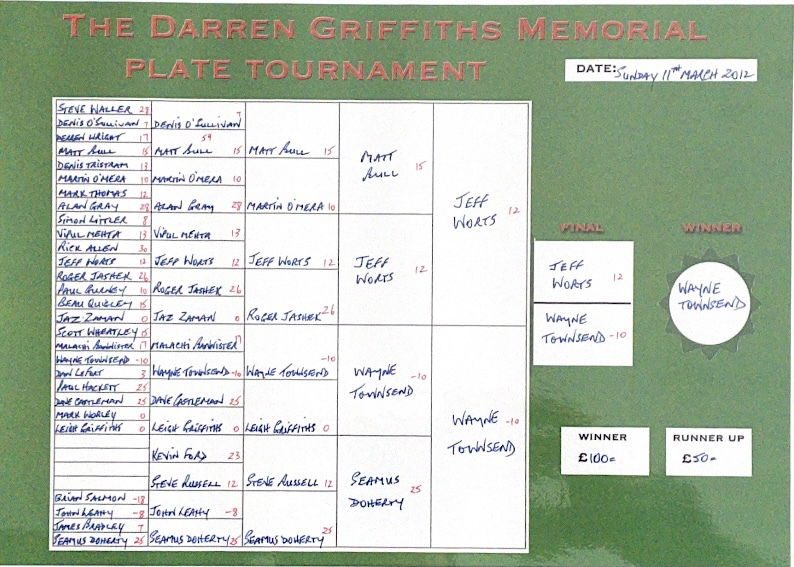 THE DARREN GRIFFITHS MEMORIAL
PLATE TOURNAMENT
DATE: SUNDAY 11TH MARCH 2012
STEVE WALLER 28
DENIS O'SULLIVAN 7
DERREN WRIGHT 17
MATT BULL 15
DENIS TRISTRAM 13
MARTIN O'MERA 10
MARK THOMAS 12
ALAN GRAY 28
SIMON LITTLER 8
VIPUL MEHTA 13
RICK ALLEN 30
JEFF WORTS 12
ROGER JASHEK 26
PAUL GURNEY 10
BEAU QUIGLEY 15
JAZ ZAMAN 0
SCOTT WHEATLEY 15
MALACHI BANNISTER 17
WAYNE TOWNSEND -10
DAN LEFORT 3
PAUL HACKETT 25
DAVE CASTLEMAN 25
MARK WORLEY 0
LEIGH GRIFFITHS 0
BRIAN SALMON -18
JOHN LEAHY -8
JAMES BRADLEY 7
SEAMUS DOHERTY 25
DENIS O'SULLIVAN 7
59
MATT BULL 15
MARTIN O'MERA 10
ALAN GRAY 28
VIPUL MEHTA 13
JEFF WORTS 12
ROGER JASHEK 26
JAZ ZAMAN 0
MALACHI BANNISTER
WAYNE TOWNSEND -10
DAVE CASTLEMAN 25
LEIGH GRIFFITHS 0
KEVIN FORD 23
STEVE RUSSELL 12
JOHN LEAHY -8
SEAMUS DOHERTY 25
MATT BULL 15
MARTIN O'MERA 10
JEFF WORTS 12
ROGER JASHEK 26
WAYNE TOWNSEND -10
LEIGH GRIFFITHS 0
STEVE RUSSELL 12
SEAMUS DOHERTY 25
MATT
BULL 15
JEFF
WORTS 12
WAYNE -10
TOWNSEND
SEAMUS 25
DOHERTY
JEFF
WORTS 12
WAYNE -10
TOWNSEND
FINAL
JEFF
WORTS 12
WAYNE
TOWNSEND -10
WINNER
WAYNE
TOWNSEND
WINNER
£100=
RUNNER UP
£50=